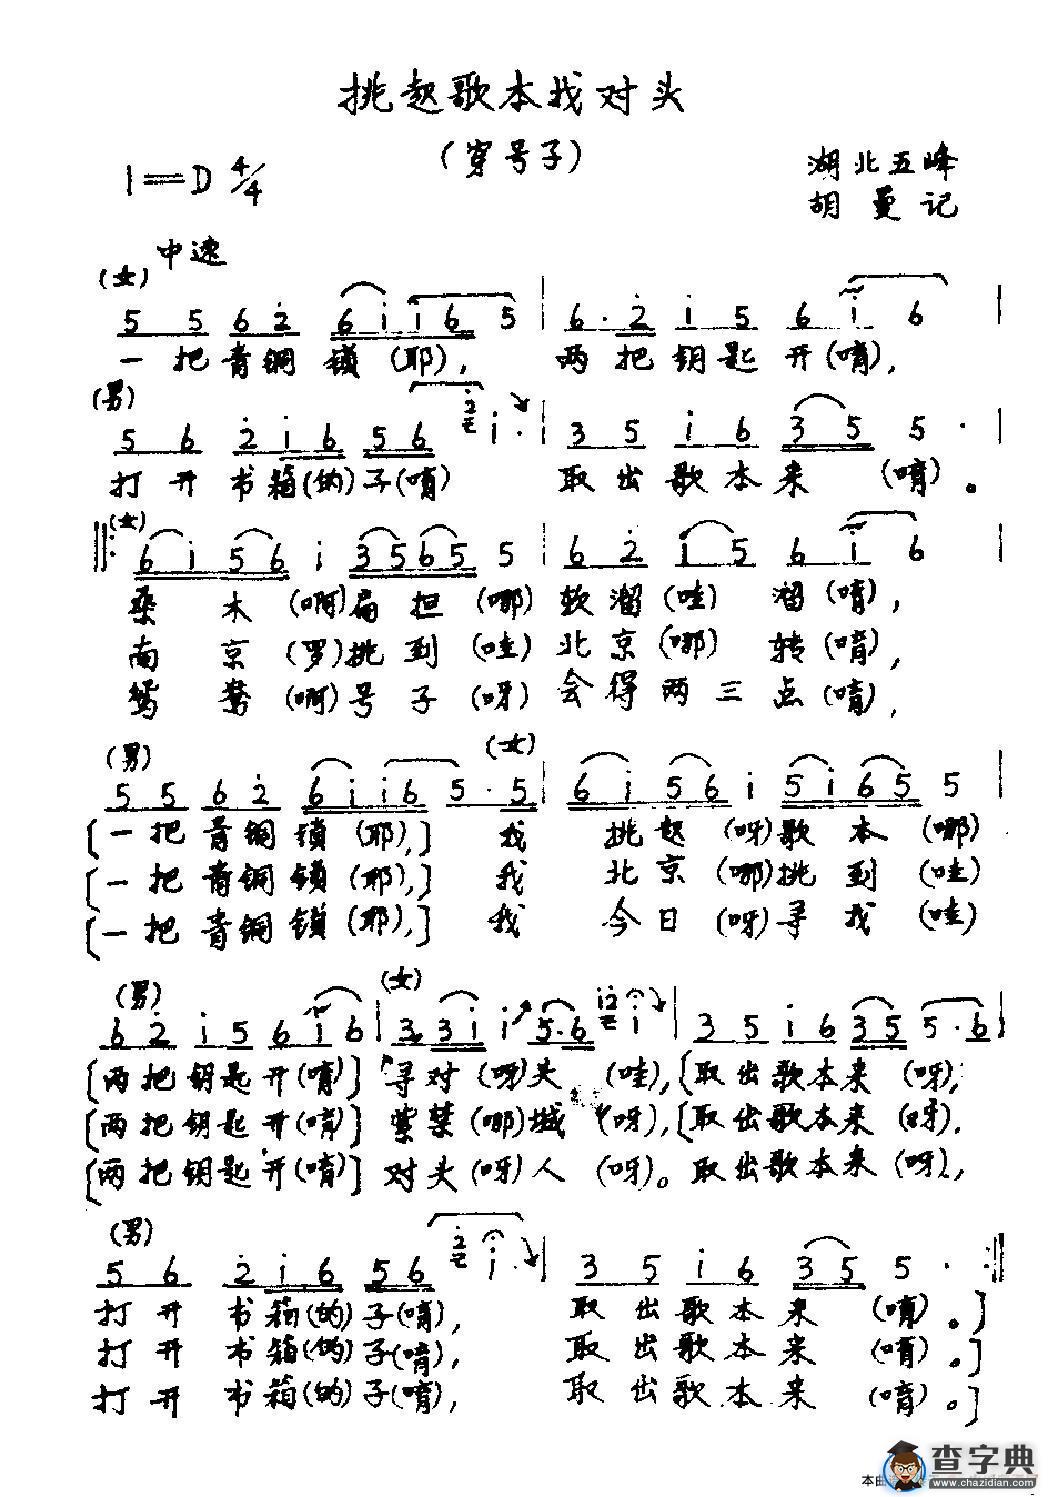 挑起歌本找对头
(穿号子)
1=D 4/4
湖北五峰
胡曼记
中速
(女)
5 5 6 2 6 i i 6 5 | 6· 2 i 5 6 i 6 |
一把青铜锁(耶), 两把钥匙开(唷),
(男)
5 6 2 i 6 5 6 i· | 3 5 i 6 3 5 5· |
打开书箱(的)子(唷) 取出歌本来(唷)。
(女)
6 i 5 6 i 3 5 6 5 5 | 6 2 i 5 6 i 6 |
桑木(啊)扁担(哪)软溜(哇)溜(唷),
南京(罗)挑到(哇)北京(哪)转(唷),
鸳鸯(啊)号子(呀)会得两三点(唷),
(男) (女)
5 5 6 2 6 i i 6 5· 5 | 6 i 5 6 i 5 i 6 5 5 |
[一把青铜锁(耶),] 我挑起(呀)歌本(哪)
[一把青铜锁(耶),] 我北京(哪)挑到(哇)
[一把青铜锁(耶),] 我今日(呀)寻找(哇)
(男) (女)
6 2 i 5 6 i 6 | 3 3 i i 5·6 i | 3 5 i 6 3 5 5·6 |
[两把钥匙开(唷)] 寻对(呀)头(哇),[取出歌本来(呀),
[两把钥匙开(唷)] 紫禁(哪)城(呀),[取出歌本来(呀),
[两把钥匙开(唷)] 对头(呀)人(呀)。取出歌本来(呀),
(男)
5 6 2 i 6 5 6 i· | 3 5 i 6 3 5 5· :||
打开书箱(的)子(唷), 取出歌本来(唷)。]
打开书箱(的)子(唷), 取出歌本来(唷)。]
打开书箱(的)子(唷), 取出歌本来(唷)。]
本曲
查字典
www.chazidian.com